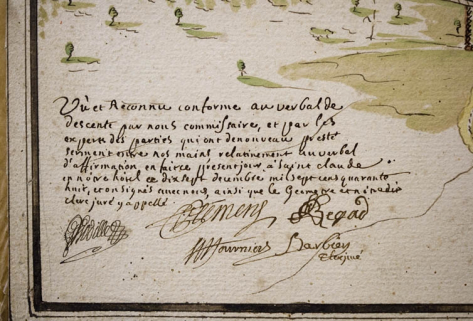 Vû et Reconnu conforme au verbal de
descente par nous commissaire, et par les
experts des parties qui ont denouveau presté
serment entre nos mains relativement au verbal
d'affirmation en faite ce present jour à Saint claude
en nôtre hôtel ce dix sept decembre mil sept cens quarante
huit, et ont signés avec nous, ainsi que le Geometre et
clerc juré y appellé
Clement Regad
fournier Barbey
Clerc juré